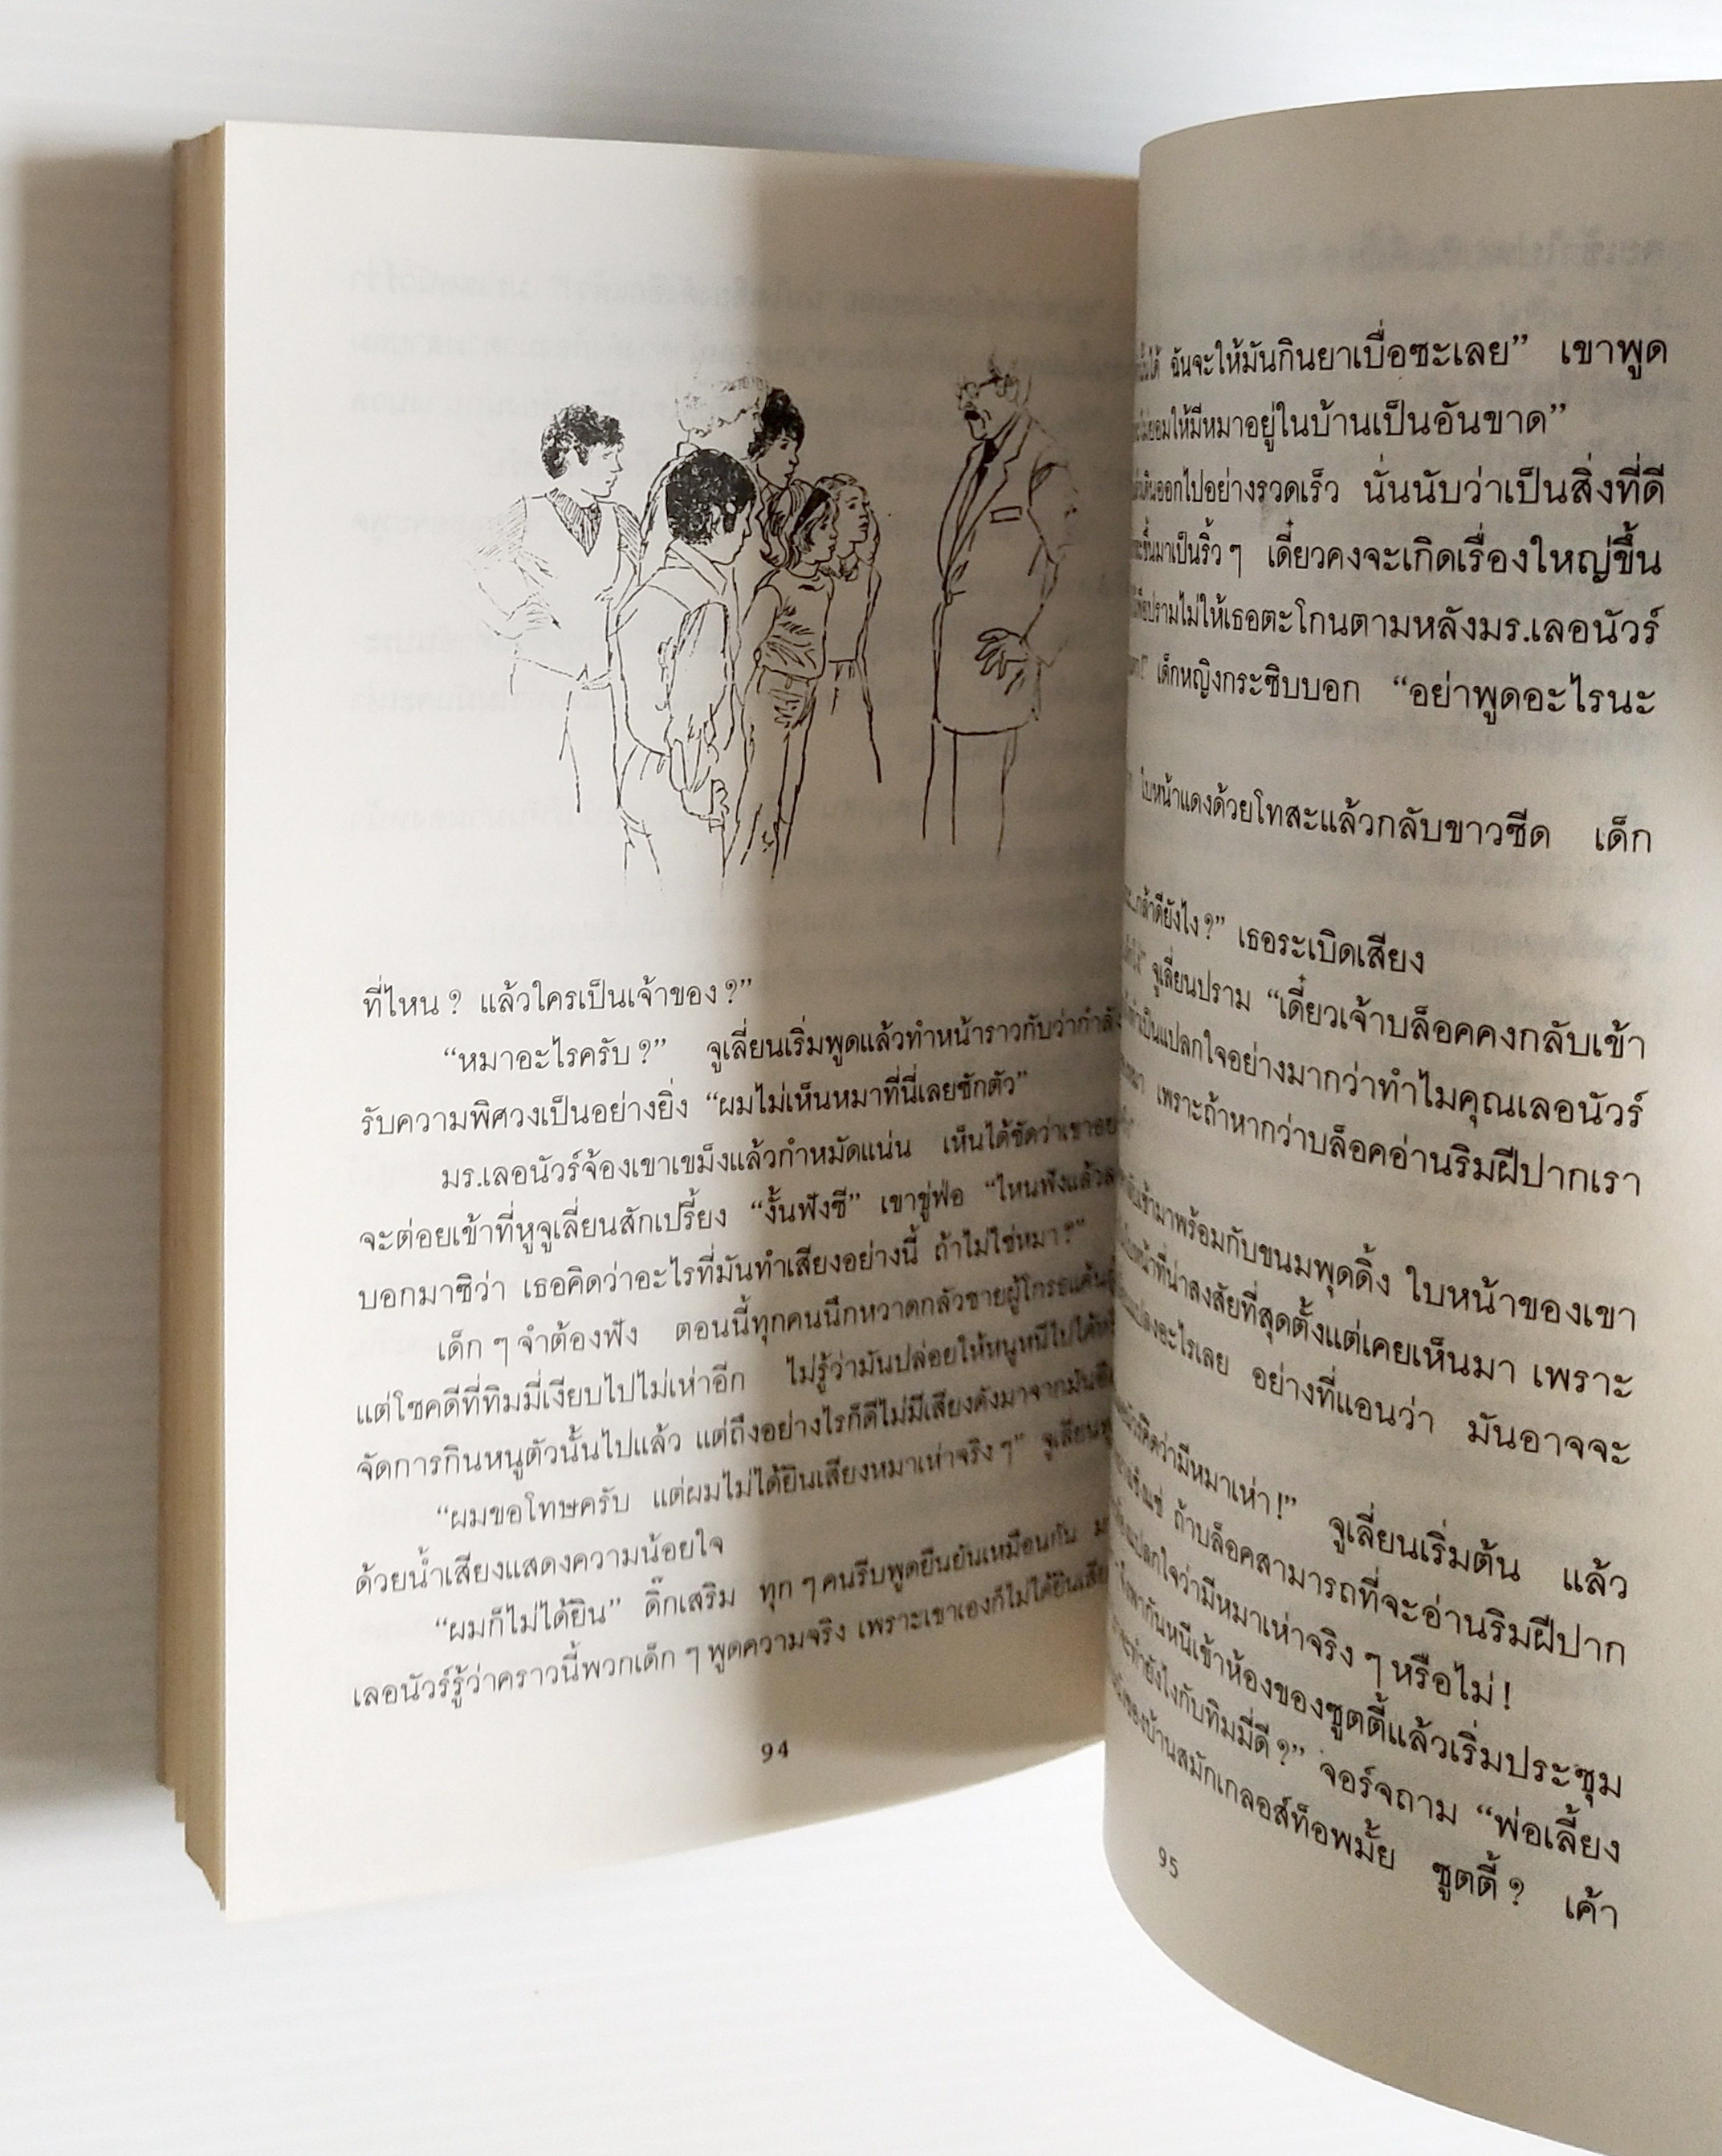 ที่ไหน ? แล้วใครเป็นเจ้าของ ?”
“หมาอะไรครับ ?” จูเลี่ยนเริ่มพูดแล้วทำหน้าราวกับว่ากำลัง
รับความพิศวงเป็นอย่างยิ่ง “ผมไม่เห็นหมาที่นี่เลยซักตัว”
มร.เลอนัวร์จ้องเขาเขม็งแล้วกำหมัดแน่น เห็นได้ชัดว่าเขา
จะต่อยเข้าที่หูจูเลี่ยนสักเปรี้ยง “งั้นฟังซี” เขาขู่ฟ่อ “ไหนฟังแล้ว
บอกมาซิว่า เธอคิดว่าอะไรที่มันทำเสียงอย่างนี้ ถ้าไม่ใช่หมา ?”
เด็ก ๆ จำต้องฟัง ตอนนี้ทุกคนนึกหวาดกลัวชายผู้โกรธแค้น
แต่โชคดีที่ทิมมี่เงียบไปไม่เห่าอีก ไม่รู้ว่ามันปล่อยให้หนูหนีไปได้
จัดการกินหนูตัวนั้นไปแล้ว แต่ถึงอย่างไรก็ดีไม่มีเสียงดังมาจากมัน
“ผมขอโทษครับ แต่ผมไม่ได้ยินเสียงหมาเห่าจริง ๆ” จูเลี่ยน
ด้วยน้ำเสียงแสดงความน้อยใจ
“ผมก็ไม่ได้ยิน” ดิ๊กเสริม ทุก ๆ คนรีบพูดยืนยันเหมือนกัน
เลอนัวร์รู้ว่าคราวนี้พวกเด็ก ๆ พูดความจริง เพราะเขาเองก็ไม่ได้ยิน
94
ฉันจะให้มันกินยาเบื่อซะเลย” เขาพูด
ยอมให้มีหมาอยู่ในบ้านเป็นอันขาด”
ออกไปอย่างรวดเร็ว นั่นนับว่าเป็นสิ่งที่ดี
ขึ้นมาเป็นริ้ว ๆ เดี๋ยวคงจะเกิดเรื่องใหญ่ขึ้น
ปรามไม่ให้เธอตะโกนตามหลังมร.เลอนัวร์
เด็กหญิงกระซิบบอก “อย่าพูดอะไรนะ
ใบหน้าแดงด้วยโทสะแล้วกลับขาวซีด เด็ก
ดียังไง ?” เธอระเบิดเสียง
จูเลี่ยนปราม “เดี๋ยวเจ้าบล็อคคงกลับเข้า
เป็นแปลกใจอย่างมากว่าทำไมคุณเลอนัวร์
เพราะถ้าหากว่าบล็อคอ่านริมฝีปากเรา
เข้ามาพร้อมกับขนมพุดดิ้ง ใบหน้าของเขา
หน้าที่น่าสงสัยที่สุดตั้งแต่เคยเห็นมา เพราะ
อะไรเลย อย่างที่แอนว่า มันอาจจะ
คิดว่ามีหมาเห่า !” จูเลี่ยนเริ่มต้น แล้ว
ถ้าบล็อคสามารถที่จะอ่านริมฝีปาก
แปลกใจว่ามีหมาเห่าจริง ๆ หรือไม่ !
พากันหนีเข้าห้องของซูตตี้แล้วเริ่มประชุม
จะทำยังไงกับทิมมี่ดี ?” จอร์จถาม “พ่อเลี้ยง
ของบ้านสมักเกลอส์ท็อพมั้ย ซูตตี้ ? เค้า
95